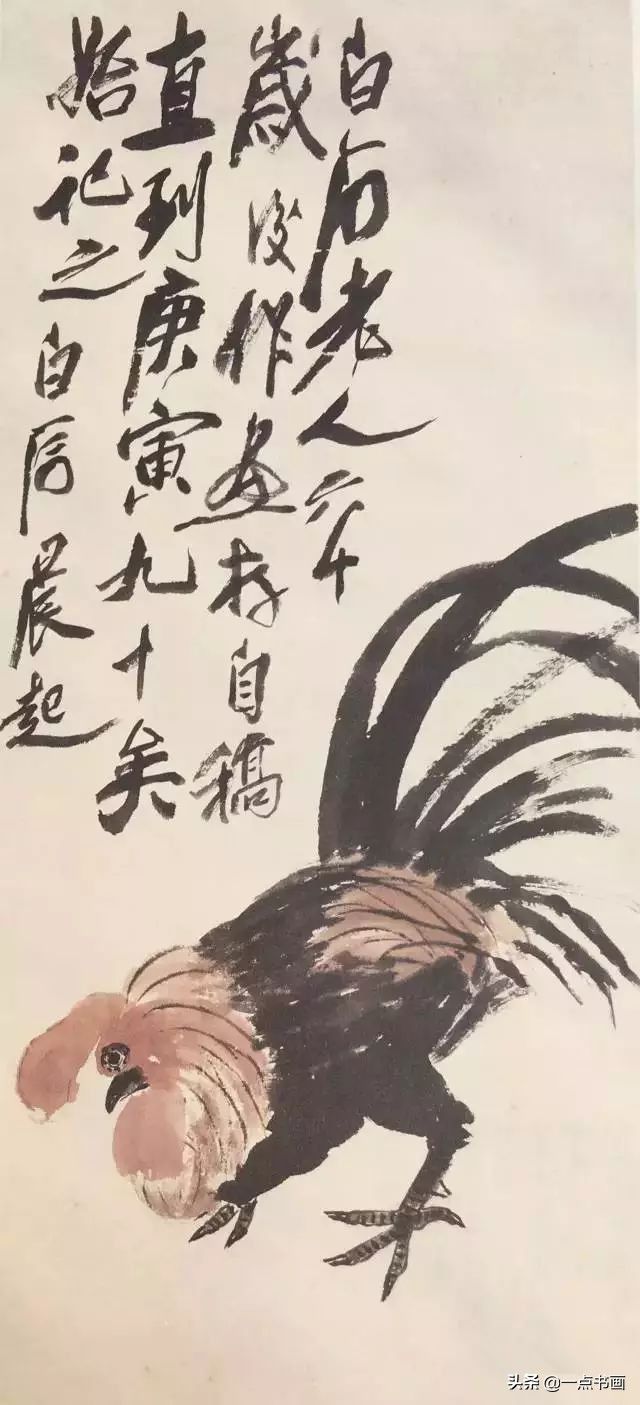 白石老人六十
歲後作畫存自稿
直到庚寅九十矣
始記之白石晨起
头条 @一点书画